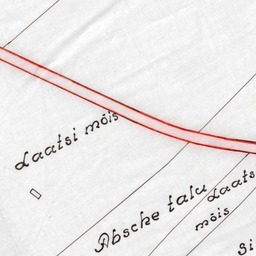 Laatsi mõis
Absche talu
Laats
mõis
Si